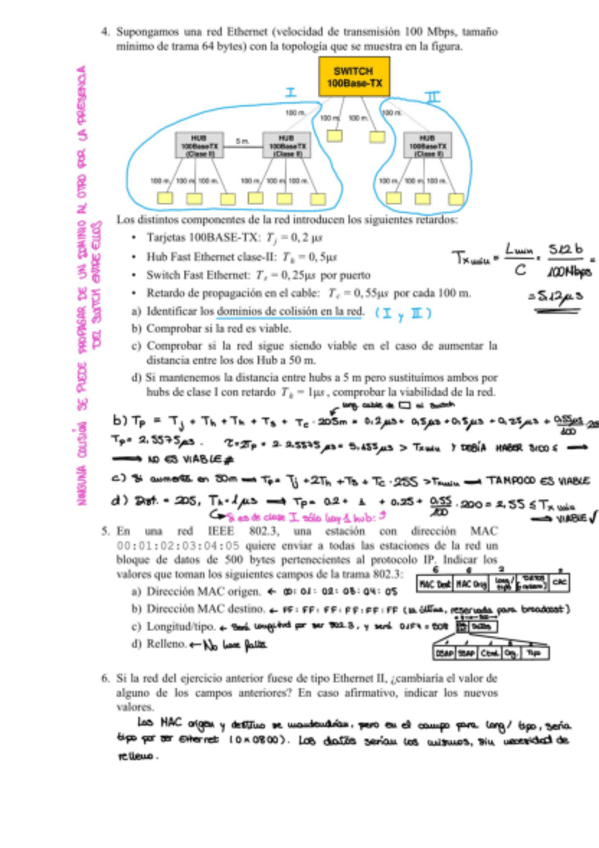 4. Supongamos una red Ethernet (velocidad de transmisión 100 Mbps, tamaño
mínimo de trama 64 bytes) con la topología que se muestra en la figura.
SWITCH
100Base-TX
I
II
100 m.
100 m.
100 m.
100 m.
HUB
100BaseTX
(Clase II)
5 m.
HUB
100BaseTX
(Clase II)
HUB
100BaseTX
(Clase II)
100 m. 100 m. 100 m.
100 m. 100 m. 100 m.
100 m. 100 m. 100 m.
NINGUNA COLISIÓN SE PUEDE PROPAGAR DE UN DOMINIO AL OTRO POR LA PRESENCIA
DEL SWITCH ENTRE ELLOS
Los distintos componentes de la red introducen los siguientes retardos:
• Tarjetas 100BASE-TX: Tj = 0,2 μs
• Hub Fast Ethernet clase-II: Th = 0,5μs
• Switch Fast Ethernet: Ts = 0,25μs por puerto
• Retardo de propagación en el cable: Tc = 0,55μs por cada 100 m.
Txmin = Lmin / C = 512 b / 100Mbps =
= 5.12μs
a) Identificar los dominios de colisión en la red. (I y II)
b) Comprobar si la red es viable.
c) Comprobar si la red sigue siendo viable en el caso de aumentar la
distancia entre los dos Hub a 50 m.
d) Si mantenemos la distancia entre hubs a 5 m pero sustituimos ambos por
hubs de clase I con retardo Th = 1μs, comprobar la viabilidad de la red.
long. cable de □ al switch
b) Tp = Tj + Th + Th + Ts + Tc · 205m = 0,2μs + 0,5μs + 0,5μs + 0,25μs + 0,55μs/100 · 205
Tp = 2,5575μs. 2·Tp = 2·2,5575μs = 5.155μs > Txmin Y DEBÍA HABER SIDO ≤
→ NO ES VIABLE
c) Si aumenta en 50m → Tp = Tj + 2Th + Ts + Tc · 255 > Txmin → TAMPOCO ES VIABLE
d) Dist. = 205, Th = 1μs → Tp = 0.2 + 1 + 0.25 + 0.55/100 · 200 = 2,55 ≤ Tx min
Si es de clase I sólo hay 1 hub:
→ VIABLE ✓
5. En una red IEEE 802.3, una estación con dirección MAC
00:01:02:03:04:05 quiere enviar a todas las estaciones de la red un
bloque de datos de 500 bytes pertenecientes al protocolo IP. Indicar los
valores que toman los siguientes campos de la trama 802.3:
6 6 2
MAC Dest MAC Orig Long/tipo CRC
a) Dirección MAC origen. ← 00:01:02:03:04:05
b) Dirección MAC destino. ← FF:FF:FF:FF:FF:FF (la última, reservada para broadcast)
c) Longitud/tipo. ← Será longitud por ser 802.3, y será 01F4 = 508
Datos
d) Relleno. ← No hace falta
DSAP SSAP Ctrol. Org. Tipo
6. Si la red del ejercicio anterior fuese de tipo Ethernet II, ¿cambiaría el valor de
alguno de los campos anteriores? En caso afirmativo, indicar los nuevos
valores.
Las MAC origen y destino se mantendrían, pero en el campo para long/tipo, sería
tipo por ser Ethernet (0x0800). Los datos serían los mismos, sin necesidad de
relleno.